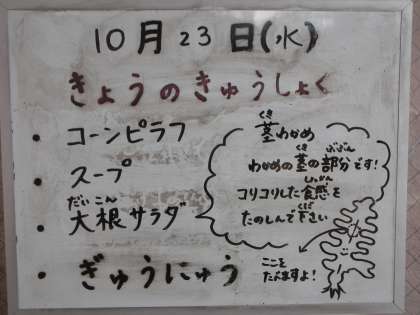 10月23日(水)
きょうのきゅうしょく
• コーンピラフ
• スープ
だいこん
• 大根サラダ
• ぎゅうにゅう
くき
茎わかめ
くき ぶぶん
わかめの茎の部分です!
しょっかん
コリコリした食感を
くだ
たのしんで下さい
ここを
たべますよ!